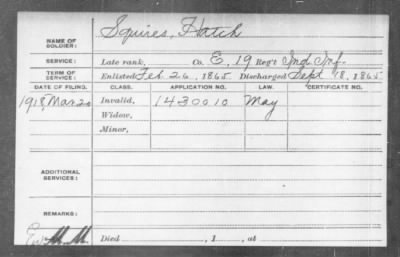 NAME OF SOLDIER: Squires, Hatch
SERVICE: Late rank, Co. E, 19 Reg't Ind. Inf.
TERM OF SERVICE: Enlisted Feb 26, 1865 Discharged Sept 18, 1865
DATE OF FILING. CLASS. APPLICATION NO. LAW. CERTIFICATE NO.
1918, Mar 20 Invalid, 1430010 May
Widow,
Minor,
ADDITIONAL SERVICES:
REMARKS:
M. M. Died , 1 , at